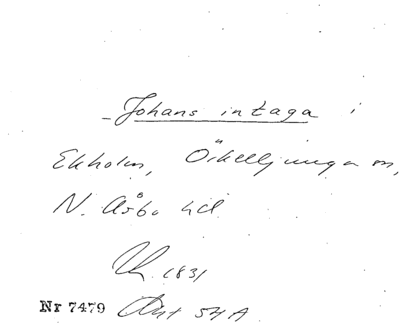 - Johans intaga i
Ekholm, Örkelljunga sn,
N. Åsbo hd
1831
Nr 7479 Akt 54A